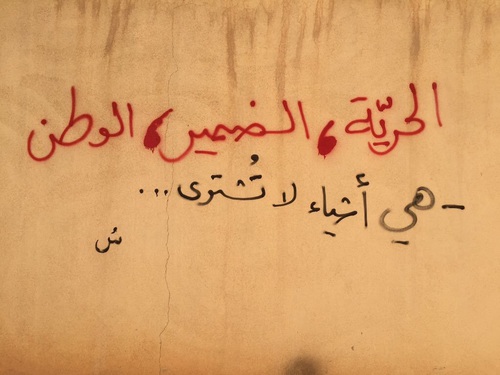 الحريّة، الضمير، الوطن
- هي أشياء لا تُشترى...
سُ